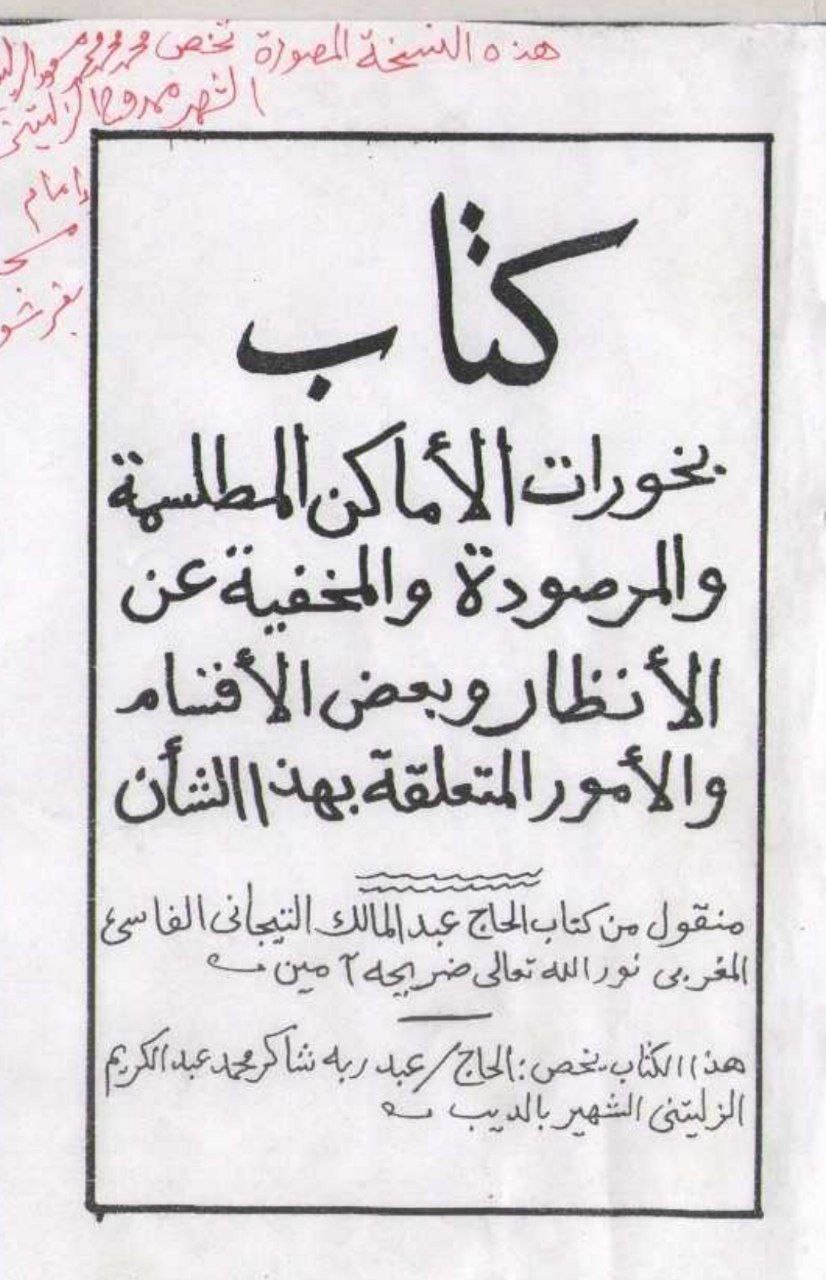 هذه النسخة المصورة تخص محمد محمد
الشهير
إمام
كتاب
بخورات الأماكن المطلسمة
والمرصودة والمخفية عن
الأنظار وبعض الأقسام
والأمور المتعلقة بهذا الشأن
منقول من كتاب الحاج عبد المالك التيجانى الفاسى
المغربى نور الله تعالى ضريحه آمين
هذا الكتاب يخص : الحاج / عبد ربه شاكر محمد عبد الكريم
الزليتنى الشهير بالديب